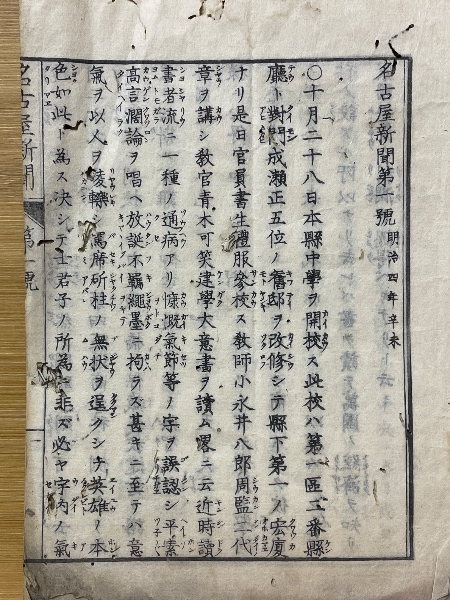 名古屋新聞第一號 明治四年辛未
〇十月二十八日本縣中學ヲ開校ス此校ハ第一區三番縣
廳ト對門成瀬正五位ノ舊邸ヲ改修シテ縣下第一ノ宏廈
ナリ是日官員書生禮服參校ス教師小永井八郎周監二代
章ヲ講シ教官青木可笑建學大意書ヲ讀ム畧ニ云近時讀
書者流ニ一種ノ通病アリ慷慨氣節等ノ字ヲ誤認シ平素
高言濶論ヲ唱ヘ放誕不羈繩墨ニ拘ラズ甚キニ至テハ意
氣ヲ以人ヲ陵轢シ罵席斫柱ノ無状ヲ逞クシテ英雄ノ本
色如此ト為ス決シテ士君子ノ所為ニ非ズ必ヤ宇内ノ氣
名古屋新聞 第一號